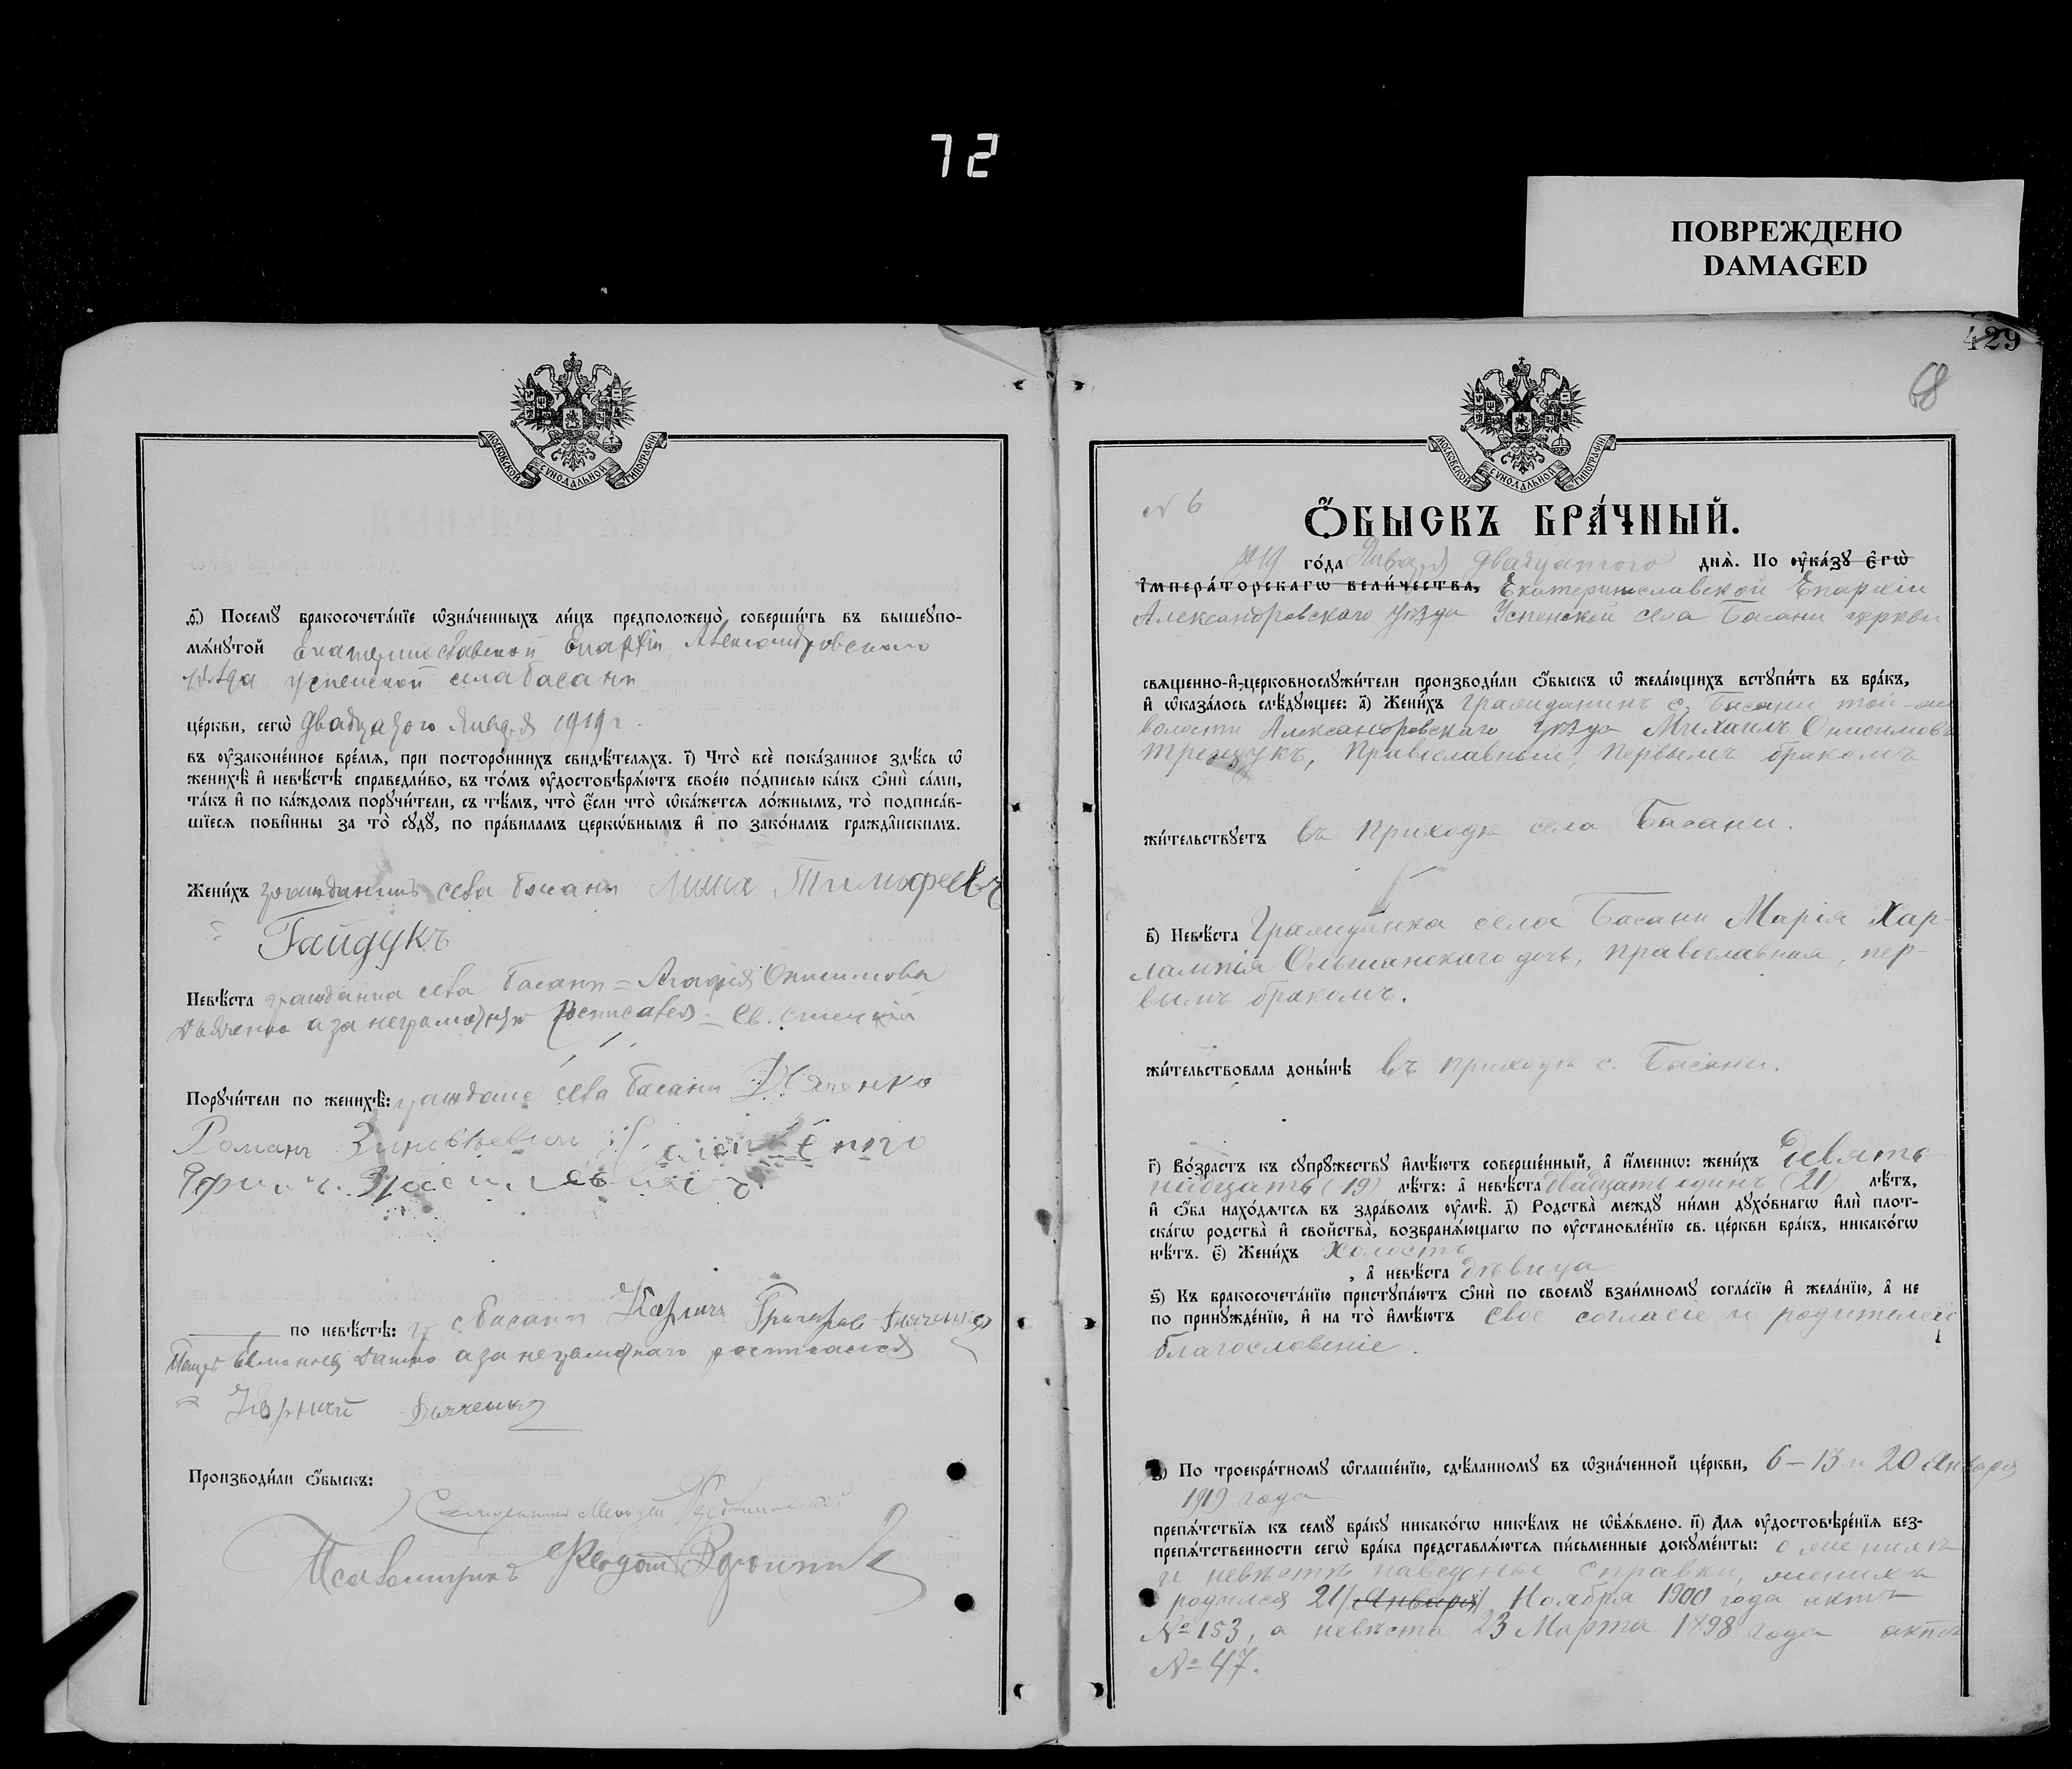 72
ПОВРЕЖДЕНО
DAMAGED
МОСКОВСКОЙ СѴНОДАЛЬНОЙ ТИПОГРАФІИ
ѳ҃) Посемꙋ̀ бракосочета́нїе ѡ҆зна́ченныхъ ли́цъ предположено̀ соверши́ть въ вышеꙋпо-
мѧ́нꙋтой Екатеринославской Епархіи Александровского
уѣзда Успенской села Басани
це́ркви, сегѡ̀ двадцатого Января 1919 г.
въ ᲂу҆законе́нное вре́мѧ, при посторо́ннихъ свидѣ́телѧхъ. і҃) Что̀ всѐ пока́занное здѣ́сь ѡ҆
женихѣ̀ и҆ невѣ́стѣ справедли́во, въ то́мъ ᲂу҆достовѣрѧ́ютъ свое́ю по́дписью ка́къ ѻ҆нѝ са́ми,
та́къ и҆ по ка́ждомъ порꙋчи́тели, съ тѣ́мъ, что̀ є҆́сли что̀ ѡ҆ка́жетсѧ ло́жнымъ, то̀ подписа́в-
шїесѧ пови́нны за то̀ сꙋдꙋ̀, по пра́виламъ церко́внымъ и҆ по зако́намъ гражда́нскимъ.
Жени́хъ гражданинъ села Басани Мина Тимофеевъ
Гайдукъ
Невѣ́ста гражданка села Басани = Агафія Онисимова
Дьяченко а за неграмотную росписался
Порꙋчи́тели по женихѣ̀: граждане села Басани Дьяченко
Романъ Зиновьевичъ
по невѣ́стѣ: г. с Басани Дяченко
а за неграмотнаго росписался
Дяченко
Производи́ли ѻ҆́быскъ:
Священникъ
Псаломщикъ
429
68
МОСКОВСКОЙ СѴНОДАЛЬНОЙ ТИПОГРАФІИ
N 6
Ѻ҆́БЫСКЪ БРА́ЧНЫЙ.
1919 го́да Января двадцатого днѧ̀. По ᲂу҆ка́зꙋ є҆гѡ̀
і҆мпера́торскагѡ вели́чества, Екатеринославской Епархіи
Александровскаго уѣзда Успенской села Басани церкви
свѧщенно-и҆-церковнослꙋжи́тели производи́ли ѻ҆́быскъ ѡ҆ жела́ющихъ встꙋпи́ть въ бра́къ,
и҆ ѡ҆каза́лось слѣ́дꙋющее: а҃) Жени́хъ Гражданинъ с. Басани той-же
волости Александровскаго уѣзда Михаилъ Онисимовъ
Трендукъ, Православный, первымъ бракомъ
жи́тельствꙋетъ въ приходѣ села Басани.
в҃) Невѣ́ста Гражданка села Басани Марія Хар-
лампія Ольшанскаго дочь, православная, пер-
вымъ бракомъ.
жи́тельствовала доны́нѣ въ приходѣ с. Басани.
г҃) Во́зрастъ къ сꙋпрꙋ́жествꙋ и҆мѣ́ютъ соверше́нный, а҆ и҆́меннѡ: жени́хъ Девять
надцать (19) лѣ́тъ: а҆ невѣ́ста двадцать одинъ (21) лѣ́тъ,
и҆ ѻ҆́ба нахо́дѧтсѧ въ здра́вомъ ᲂу҆мѣ̀. д҃) Родства̀ междꙋ̀ ни́ми дꙋхо́внагѡ и҆лѝ плот-
ска́гѡ родства̀ и҆ сво́йства, возбранѧ́ющагѡ по ᲂу҆становле́нїю св. це́ркви бра́къ, никако́гѡ
нѣ́тъ. є҃) Жени́хъ Холостъ
, а҆ невѣ́ста дѣвица
ѕ҃) Къ бракосочета́нїю пристꙋпа́ютъ ѻ҆нѝ по своемꙋ̀ взаи́мномꙋ согла́сїю и҆ жела́нїю, а҆ не
по принꙋжде́нїю, и҆ на то̀ и҆мѣ́ютъ свое согласіе и родителей
благословеніе.
По троекра́тномꙋ ѡ҆глаше́нїю, сдѣ́ланномꙋ въ ѡ҆зна́ченной це́ркви, 6 – 13 и 20 Января
1919 года
препѧ́тствїѧ къ семꙋ̀ бра́кꙋ никако́гѡ никѣ́мъ не ѡ҆б̾ѧ́влено. и҃) Длѧ ᲂу҆достовѣре́нїѧ без-
препѧ́тственности сегѡ̀ бра́ка представлѧ́ютсѧ пи́сьменные докꙋме́нты: о женихѣ
и невѣстѣ наведены справки, женихъ
родился 21 (Января) Ноября 1900 года актъ
№ 153, а невѣста 23 Марта 1898 года актъ
№ 47.